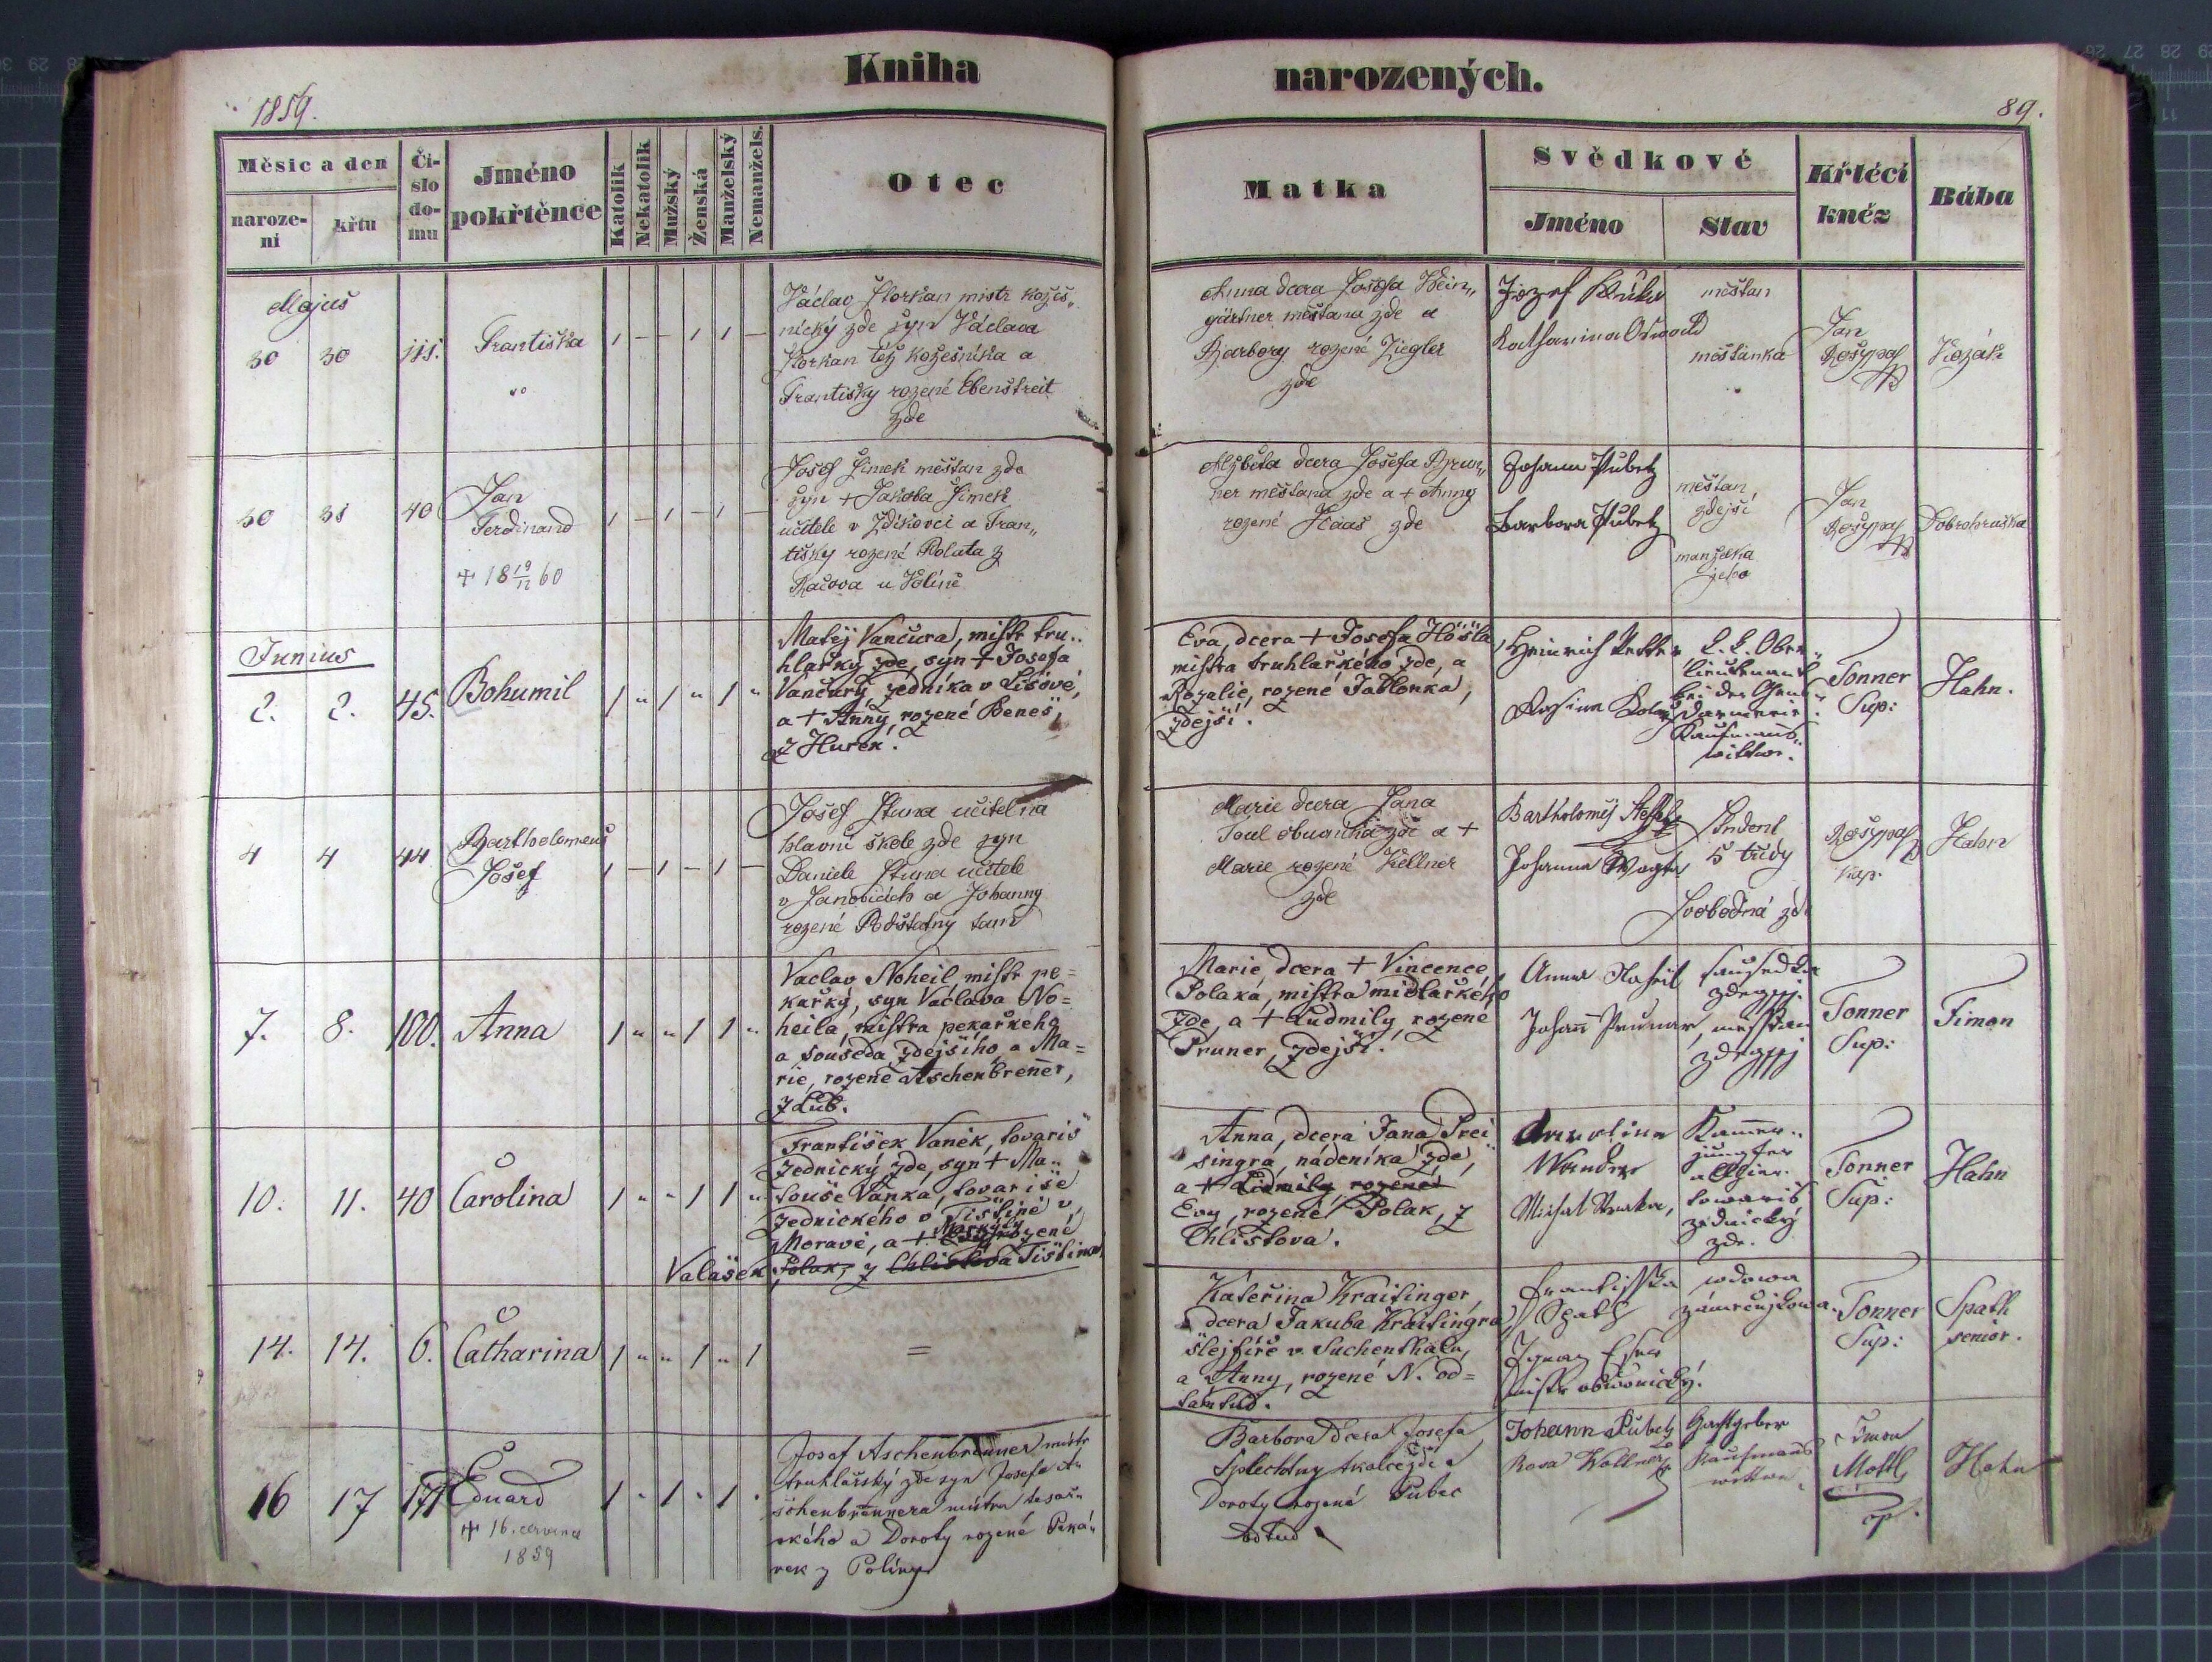 Kniha narozených.
1859.
89.
Měsíc a den
naroze-
ni
křtu
Čí-
slo
do-
mu
Jméno
pokřtěnce
Katolík
Nekatolík
Mužský
Ženská
Manželský
Nemanžels.
Otec
Matka
Svědkové
Jméno
Stav
Křtécí
kněz
Bába
Majus
30 30 111. Františka
Václav Storkan mistr kožeš„
nický zde syn Václava
Storkan též kožešníka a
Františky rozené Ebenstreit
zde
Anna dcera Josefa Wein„
gärtner měšťana zde a
Barbory rozené Ziegler
zde
Jozef
Katharina Oswald
měšťan
měšťanka
Jan
Rosypal
Kozák
30 31 40 Jan
Ferdinand
+ 18 19/12 60
Josef Šimek měšťan zde
syn + Jakoba Šimek
učitele v Zdíkovci a Fran„
tišky rozené Poluta z
Račova u Volíně
Alžběta dcera Josefa Brun„
ner měšťana zde a + Anny
rozené Haas zde
Johann Pubetz
Barbora Pubetz
měšťan
zdejší
manželka
jeho
Jan
Rosypal
Dobrohruška
Junius
2. 2. 45. Bohumil
Matěj Vančura, mistr tru..
hlařký zde, syn + Josefa
Vančury, zedníka v Libově,
a + Anny, rozené Beneš,
z Hurek.
Eva, dcera + Josefa Hösla,
mistra truhlařkého zde, a
Rozalie, rozené Jablonka,
zdejší.
Heinrich Vetter
Rosina
k. k. Ober„
lieutenant
bei der Gen„
darmerie.
Kaufmanns„
wittwe.
Tonner
Sup:
Hahn.
4 4 44 Bartholomeus
Josef
Josef Stuna učitel na
hlavní škole zde syn
Daniele Stuna učitele
v Janovicích a Johanny
rozené Podstatný tam
Marie dcera Jana
Toul obuvníka zde a +
Marie rozené Kellner
zde
Bartholoměj
Johanna
Student
5 třídy
svobodná zde
Rosypal
kap.
Hahn
7. 8. 100. Anna
Vaclav Noheil mistr pe=
kařký, syn Václava No=
heila, mistra pekařkého
a souseda zdejšího, a Ma=
rie, rozené Aschenbrenner,
z Lub.
Marie, dcera + Vincence
Polaka, mistra midlařkého
zde, a + Ludmily, rozené
Pruner, zdejší.
Anna Noheil
Johann Prunar,
sausedka
zdegssj.
messtan
zdegssj
Tonner
Sup:
Timon
10. 11. 40 Carolina
František Vaněk, tovariš
zednický zde, syn + Ma..
touše Vaňka, tovariše
zednického v Tištině v
Moravě, a + Markyty rozené
Valašek z Tiština
Anna, dcera Jana Prei„
singra, nádeníka zde,
a + Lidmily rozené
Evy, rozené Polak, z
Chlistova.
Karolina
Michal
Kammer„
jungfer
towariš
zednický
zde.
Tonner
Sup:
Hahn
14. 14. 6. Catharina
=
Kateřina Kraitinger,
dcera Jakuba Kraitingra,
šlejfíře v Suchenthalu,
a Anny, rozené N. od=
tamtud.
Frantisska
Spath
Ignaz
mistr obuvnický.
wdowa
zámečnjkowa.
Tonner
Sup:
Spath
senior.
16 17 171 Eduard
+ 16. července
1859
Josef Aschenbrenner mistr
truhlářský zde syn Josefa A„
schenbrennera mistra tesař„
ského a Doroty rozené Peká„
rek z Políny
Barbora dcera Josefa
Šplechtny tkalce zde a
Doroty rozené Pubec
odtud
Johann Pubetz
Rosa Wollner
Gastgeber
Kaufmanns
wittwe
Simon
Mottl
cp.
Hahn